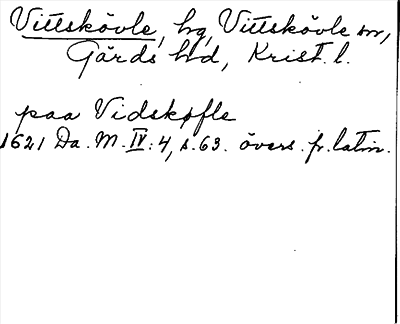 Vittskövle, hg, Vittskövle sn,
Gärds hd, Krist. l.
paa Vidskøfle
1621 Da. M. IV: 4, s. 63. övers. fr. latin.